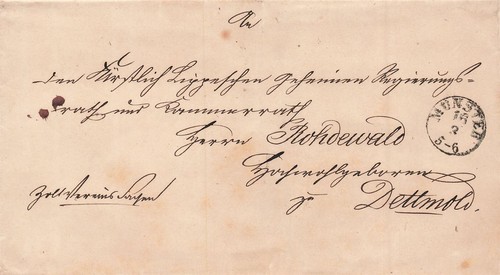 An
den Fürstlich Lippeschen Geheimen Regierungs-
rath und Kammerrath
Herrn Rohdewald
Hochwohlgeboren
zu Dettmold.
Zoll Vereins Sachen
MÜNSTER
16
2
5-6